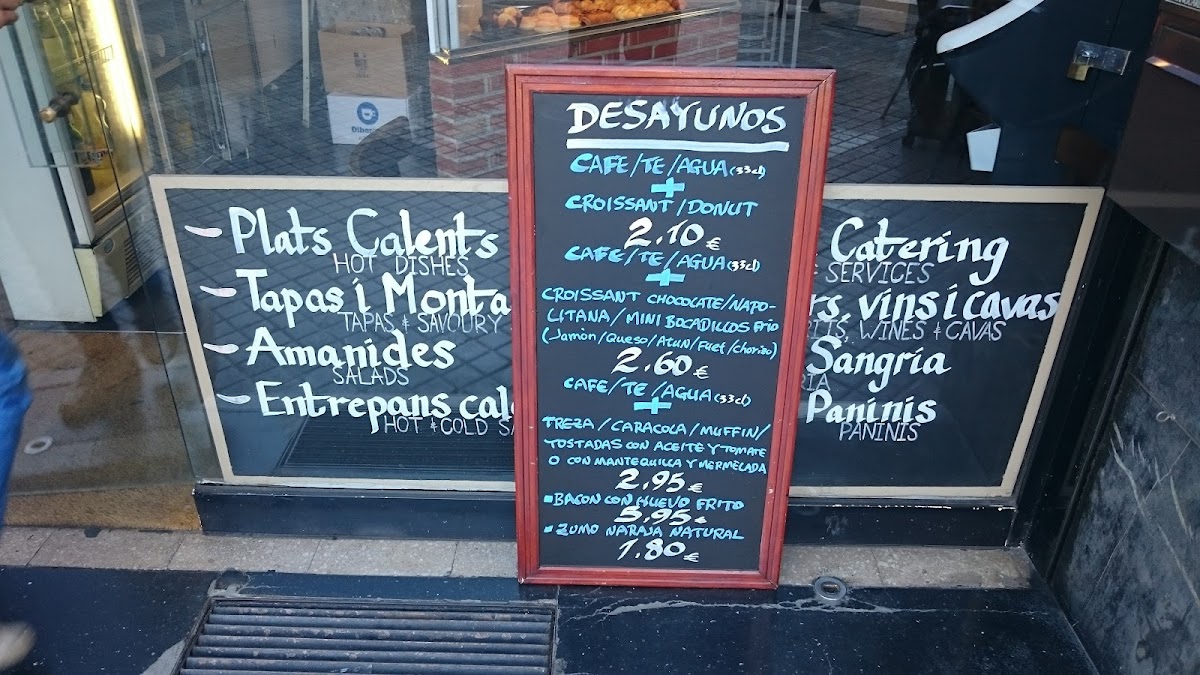 DESAYUNOS
CAFE/TE/AGUA (33cl)
+
CROISSANT/DONUT
2.10 €
CAFE/TE/AGUA (33cl)
+
CROISSANT CHOCOLATE/NAPO-
LITANA/MINI BOCADILLOS Frío
(Jamòn/Queso/Atun/Fuet/chorizo)
2.60 €
CAFE/TE/AGUA (33cl)
+
TREZA/CARACOLA/MUFFIN/
TOSTADAS CON ACEITE Y TOMATE
O CON MANTEQUILLA Y MERMELADA
2.95 €
BACON CON HUEVO FRITO
5.95 €
ZUMO NARAJA NATURAL
1.80 €
- Plats Calents
HOT DISHES
- Tapas i Monta
TAPAS & SAVOURY
- Amanides
SALADS
- Entrepans cal
HOT & COLD SA
Catering
SERVICES
rs, vins i cavas
WINES & CAVAS
Sangría
RIA
Paninis
PANINIS